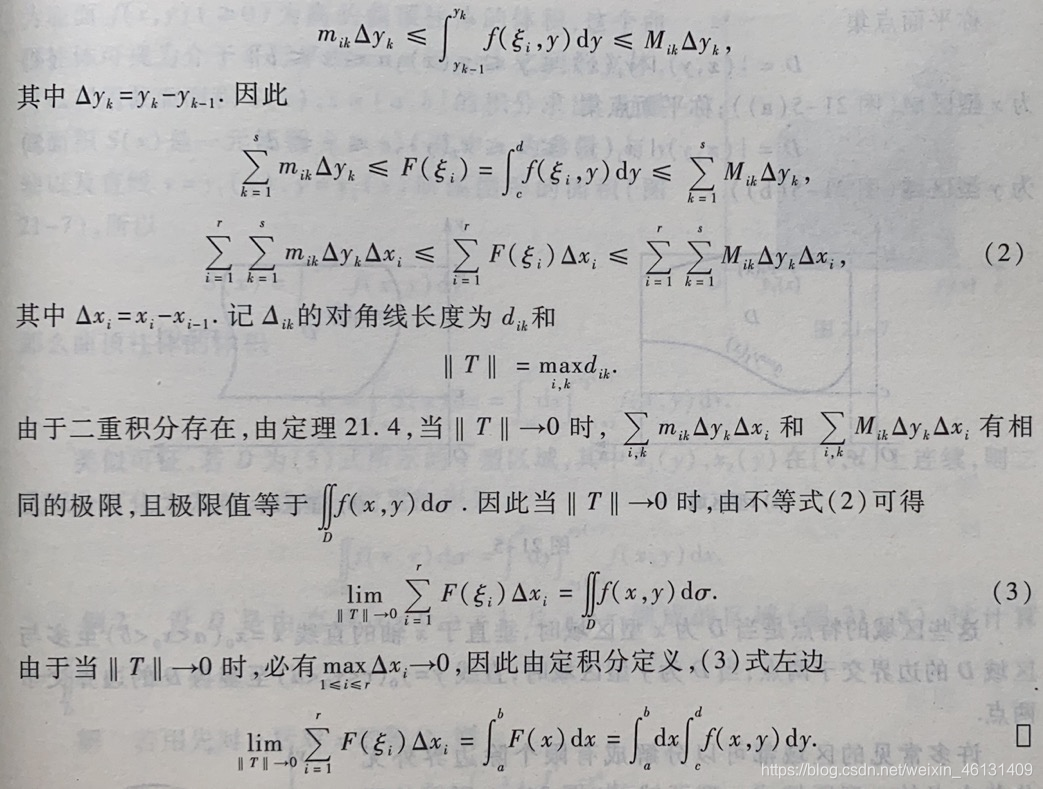 m_{ik}Δy_k ≤ ∫_{y_{k-1}}^{y_k} f(ξ_i,y)dy ≤ M_{ik}Δy_k,
其中 Δy_k=y_k-y_{k-1}. 因此
∑_{k=1}^{s} m_{ik}Δy_k ≤ F(ξ_i) = ∫_c^d f(ξ_i,y)dy ≤ ∑_{k=1}^{s} M_{ik}Δy_k,
∑_{i=1}^{r} ∑_{k=1}^{s} m_{ik}Δy_kΔx_i ≤ ∑_{i=1}^{r} F(ξ_i)Δx_i ≤ ∑_{i=1}^{r} ∑_{k=1}^{s} M_{ik}Δy_kΔx_i, (2)
其中 Δx_i=x_i-x_{i-1}. 记 Δ_{ik}的对角线长度为 d_{ik}和
‖T‖ = max_{i,k} d_{ik}.
由于二重积分存在,由定理 21.4,当‖T‖→0 时, ∑_{i,k} m_{ik}Δy_kΔx_i 和 ∑_{i,k} M_{ik}Δy_kΔx_i 有相
同的极限,且极限值等于 ∬_D f(x,y)dσ. 因此当‖T‖→0 时,由不等式(2)可得
lim_{‖T‖→0} ∑_{i=1}^{r} F(ξ_i)Δx_i = ∬_D f(x,y)dσ. (3)
由于当‖T‖→0 时,必有 max_{1≤i≤r} Δx_i→0,因此由定积分定义,(3)式左边
lim_{‖T‖→0} ∑_{i=1}^{r} F(ξ_i)Δx_i = ∫_a^b F(x)dx = ∫_a^b dx∫_c^d f(x,y)dy. □
https://blog.csdn.net/weixin_46131409